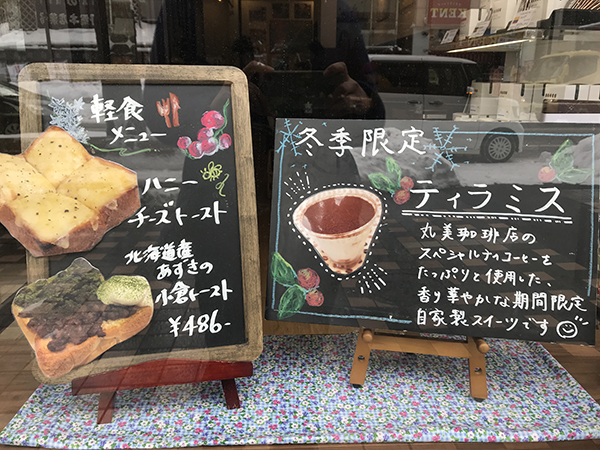 軽食
メニュー
ハニー
チーズトースト
北海道産
あずきの
小倉トースト
¥486-
冬季限定
ティラミス
丸美珈琲店の
スペシャルティコーヒーを
たっぷりと使用した、
香り華やかな期間限定
自家製スイーツです
KENT